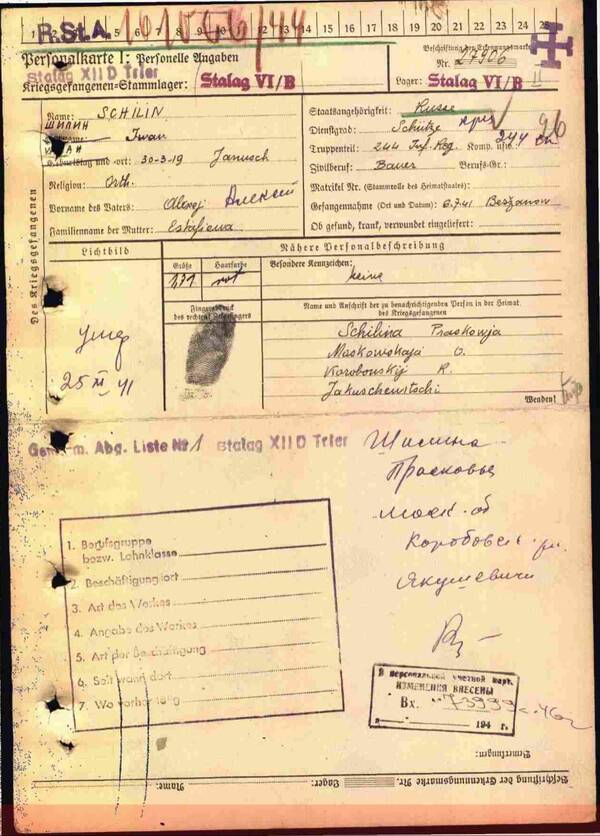 R.St.A. 101566/44
1 2 3 4 5 6 7 8 9 10 11 12 13 14 15 16 17 18 19 20 21 22 23 24 25
Personalkarte I: Personelle Angaben
Stalag XII D Trier
Kriegsgefangenen-Stammlager: Stalag VI/B
Beschriftung der Erkennungsmarke
Nr. 27906
Lager: Stalag VI/B
Des Kriegsgefangenen
Name: SCHILIN
ШИЛИН
Vorname: Iwan
ИВАН
Geburtstag und -ort: 30-3-19 Janusch
Religion: Orth.
Vorname des Vaters: Alexej Алексей
Familienname der Mutter: Estafiewa
Staatsangehörigkeit: Russe
Dienstgrad: Schütze
Truppenteil: 244 Inf. Reg. Komp. usw.: 244
Zivilberuf: Bauer Berufs-Gr.:
Matrikel Nr. (Stammrolle des Heimatstaates):
Gefangennahme (Ort und Datum): 6.7.41 Beszanow
Ob gesund, krank, verwundet eingeliefert:
96
Lichtbild
Nähere Personalbeschreibung
Größe Haarfarbe
1,71 rot
Besondere Kennzeichen:
keine
Fingerabdruck
des rechten Zeigefingers
Name und Anschrift der zu benachrichtigenden Person in der Heimat
des Kriegsgefangenen
Schilina Praskowja
Moskowskaja O.
Korobowskij R.
Jakuschewitschi
Wenden!
умер
25 XI 41
Gem. m. Abg. Liste Nr 1 Stalag XII D Trier
Шилина
Прасковья
Моск. об
Коробовск. р.
Якушевичи
1. Berufsgruppe
bezw. Lohnklasse
2. Beschäftigt ort
3. Art des Werkes
4. Angabe des Werkes
5. Art der Beschäftigung
6. Seit wann dort
7. Wo vorher tätig
В персональной учетной карт.
ИЗМЕНЕНИЯ ВНЕСЕНЫ
Вх. "73999с-46г
194 г.
Bemerkungen:
Beschriftung der Erkennungsmarke Nr.
Lager:
Name: